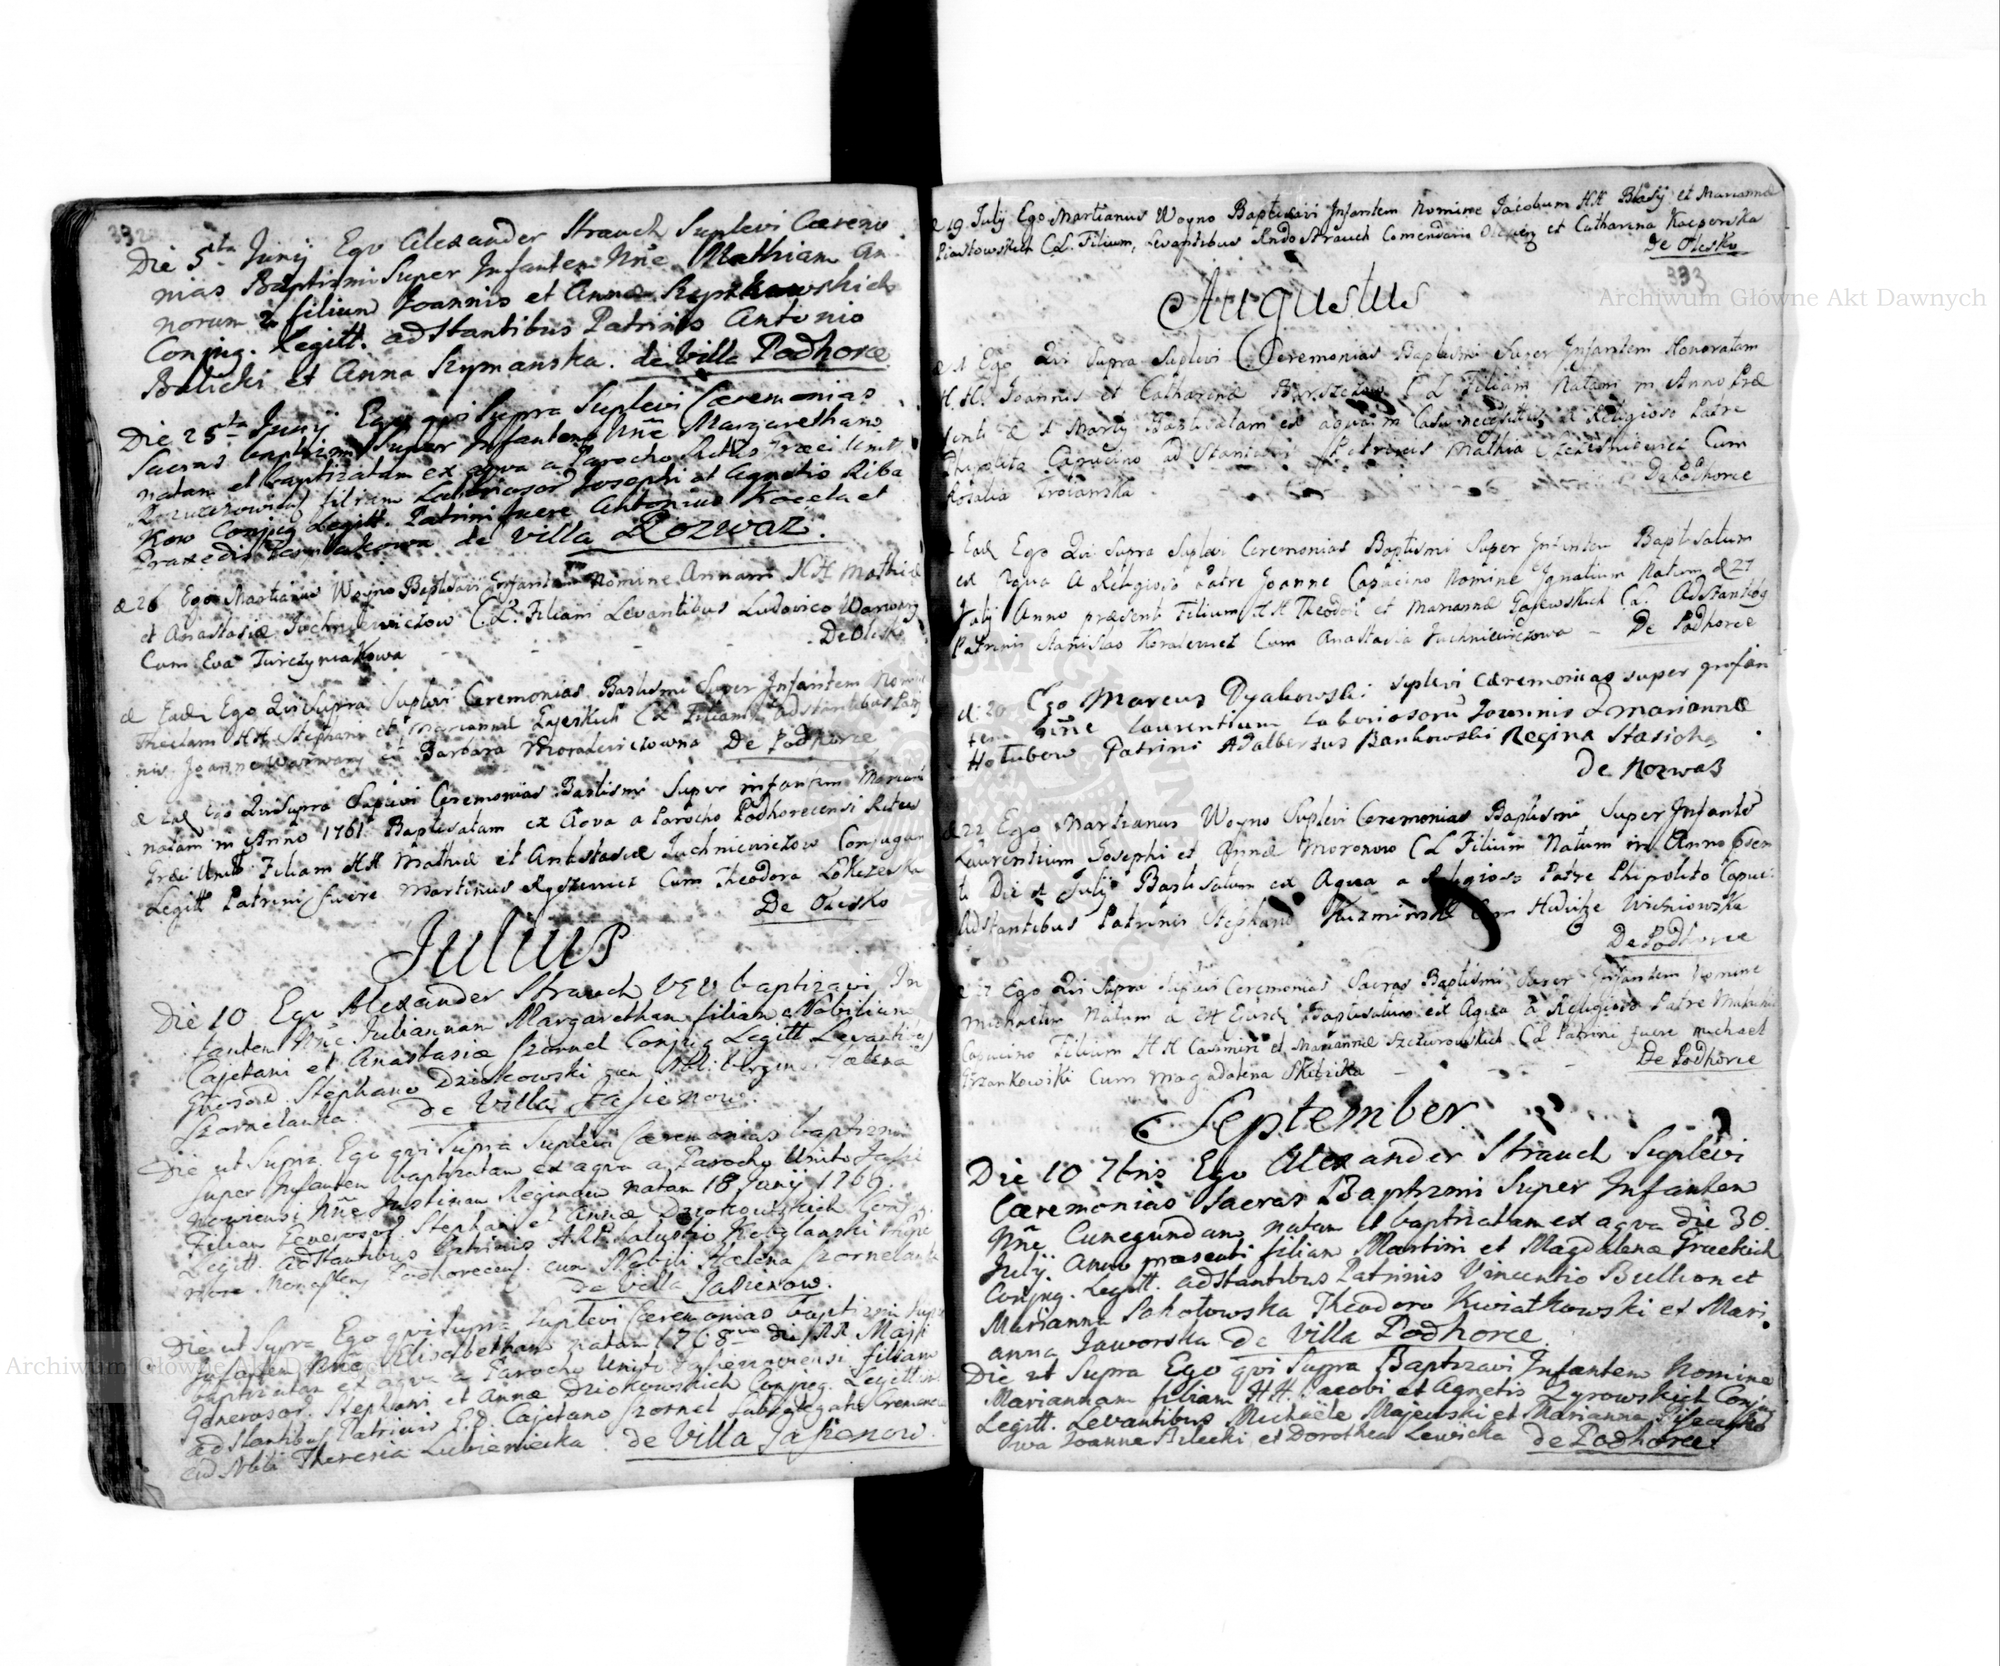 332
Die 5ta Junij Ego Alexander Strauch Suplevi Cæremo
nias Baptismi Super Infantem Nñe Mathiam An
norum 2 filium Joannis et Annæ
Conjug. Legitt. adstantibus Patrinis Antonio
Bilicki et Anna Szymanska. de Villa Podhorce
Die 25ta Junij Ego qui Supra Suplevi Cæremonias
Sacras baptismi Super Infantem Nñe Margaretham
natam et baptizatam ex aqva a Parocho Ritus Græci Unit
filiam Laboriosor Josephi et Agnetis Riba
kow Conjug Legitt. Patrini fuere Antonius Koceła et
Praxedis de Villa Rozwaz.
d 26 Ego Martianus Woyno Baptisavi Infantem Nomine Annam HH Mathiæ
et Anastasiæ Juchniewiczow C.L. Filiam Levantibus Ludovico Warwary
Cum Eva Turczyniakowa De Olesko
d Eadē Ego Qui Supra Suplevi Ceremonias Baptismi Super Infantem Nomine
Theclam HH Stephani et Mariannæ Gajeskich CL Filiam adstantibus Patri
nis Joanne Warwary et Barbara Moradewiczowna De Podhorce
d Ead Ego Qui Supra Suplevi Ceremonias Baptismi Super infantem Marian
natam in Anno 1761 Baptisatam ex Aqva a Parocho Podhorecensi Ritus
Græci Unit Filiam HH Mathiæ et Anastasiæ Juchniewiczow Conjugum
Legitt Patrini fuere Martinus Cum Theodora
De Olesko
Julius
Die 10 Ego Alexander Strauch baptizavi In
fantem Nñe Juliannam Margaretham filiam Nobilium
Cajetani et Anastasiæ Szornel Conjug Legitt Levantibus
Gnoso D. Stephano Dziokowski cum Nbl. Virgine Hælena
Szornelanka. de Villa Jasienow.
Die ut Supra Ego qvi Supra Suplevi Cæremonias baptismi
Super Infantem baptizatam ex aqva a Parocho Unito Jasie
nowiensi Nñe Justinam Reginam natam 18 Junij 1769.
Filiam Generosor. Stephani et Annæ Dziokowskich Conjug.
Legitt. adstantibus Patrinis
more Monastery Podhorecen. cum Nobili Hælena Szornelanka
de Villa Jasienow.
Die ut Supra Ego qvi Supra Suplevi Cæremonias baptismi Super
Infantem Nñe Elisabetham natam 1768vo die Maji
baptizatam ex aqva a Parocho Unito filiam
Generosor. Stephani et Annæ Dziokowskich Conjug. Legittim
adstantibus Patrinis G.D. Cajetano Szornel
Theresia Lubieniecka. de Villa Jasienow.
d 19 July Ego Martianus Woyno Baptisavi Infantem Nomine Jacobum HH Blasij et Mariannæ
Piontkowskich CL. Filium, Levantibus Rndo Strauch Comendario et Catharina Kacperska
De Olesko
333
Augustus
d 1 Ego Qui Supra Suplevi Ceremonias Baptismi Super Infantem Honoratam
H.H. Joannis et Catharinæ CL Filiam Natam in Anno Præ
senti d 1 Martij Baptisatam ex aqua in Casu necesitatis a Religioso Patre
Phipolito Capucino ad Patrinis Mathia Cum
Rosalia Trojanska De Podhorce
Eadē Ego Qui Supra Suplevi Ceremonias Baptismi Super Infantem Baptisatum
ex Aqua A Religioso Patre Joanne Capucino Nomine Ignatium Natum d 27
July Anno præsenti Filium HH Theodori et Mariannæ Gajewskich CL. Adstantibus
Patrinis Stanislao Cum Anastasia Juchniewiczowa - De Podhorce
d: 20 Ego Marcus Dyakowski suplevi cæremonias super infan
tem nñe Laurentium laboriosorū Joannis & Mariannæ
Hołubow Patrini Adalbertus Bankowski Regina Stasicka
De Rozwaz
d 22 Ego Martianus Woyno Suplevi Ceremonias Baptismi Super Infante
Laurentium Josephi et Annæ Moronow CL Filium Natum in Anno Præsen
ti Die 1 July Baptisatum ex Aqua a Religioso Patre Phipolito Capuci
Adstantibus Patrinis Stephano Kuzminski Cum Wiszniowska
De Podhorce
d 27 Ego Qui Supra Suplevi Ceremonias Sacras Baptismi Super Infantem Nomine
Michaelem Natum d Baptisatum ex Aqua a Religioso Patre
Capucino Filium HH Casimiri et Mariannæ Szczurowskich CL Patrini fuere Michael
Grzankowski Cum Magdalena De Podhorce
September
Die 10 7bris Ego Alexander Strauch Suplevi
Cæremonias Sacras Baptizmi Super Infantem
Nñe Cunegundam natam et baptizatam ex aqva die 30.
July. Anno præsenti filiam Martini et Magdalenæ
Conjug. Legitt. adstantibus Patrinis Vincentio Bullion et
Marianna Sokołowska Theodoro Kwiatkowski et Mari
anna Jaworska de Villa Podhorce.
Die ut Supra Ego qvi Supra Baptizavi Infantem Nomine
Mariannam filiam HH. Jacobi et Agnetis Zyrowskich Conjug
Legitt. Levantibus Michaele Majewski et Marianna
wa Joanne Bilecki et Dorothea Lewicka de Podhorce.
Archiwum Główne Akt Dawnych
Archiwum Główne Akt Dawnych